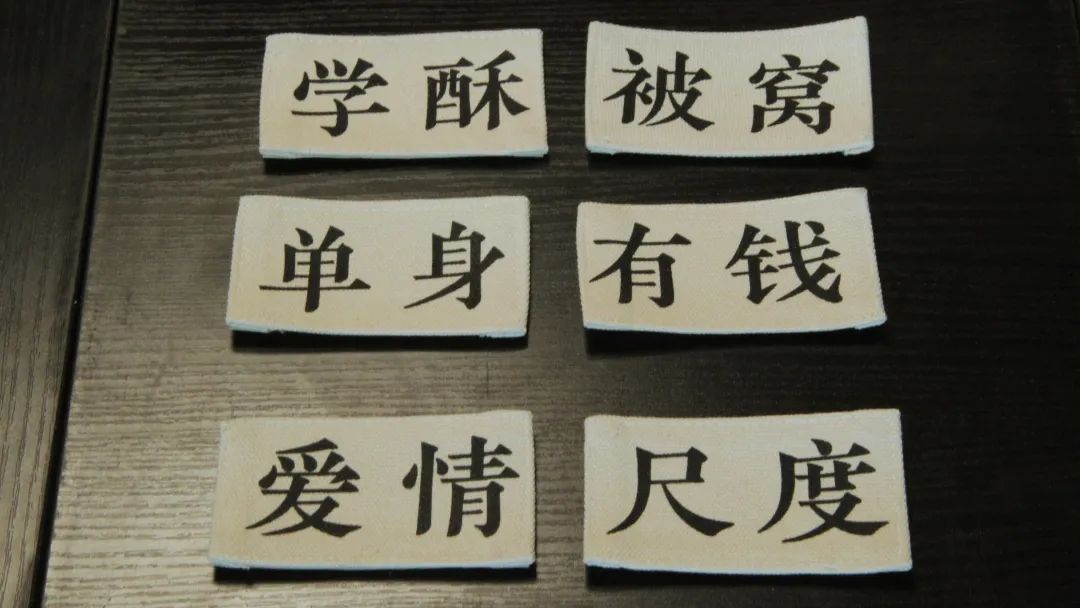 学酥 被窝
单身 有钱
爱情 尺度